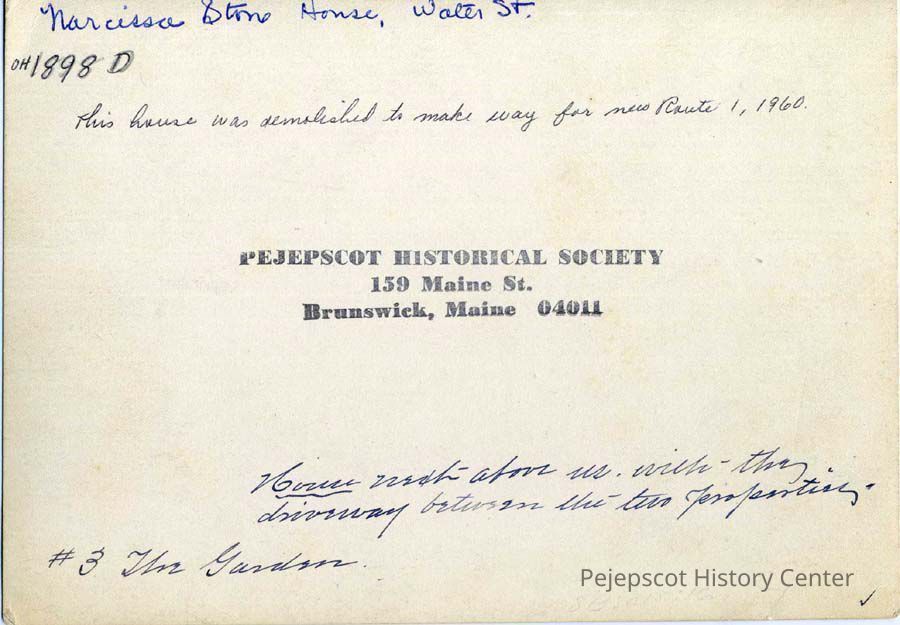 Narcissa Stone House, Water St.
OH1898 D
This house was demolished to make way for new Route 1, 1960.
PEJEPSCOT HISTORICAL SOCIETY
159 Maine St.
Brunswick, Maine 04011
House next above us. with the
driveway between the two properties.
#3 The Garden.
Pejepscot History Center